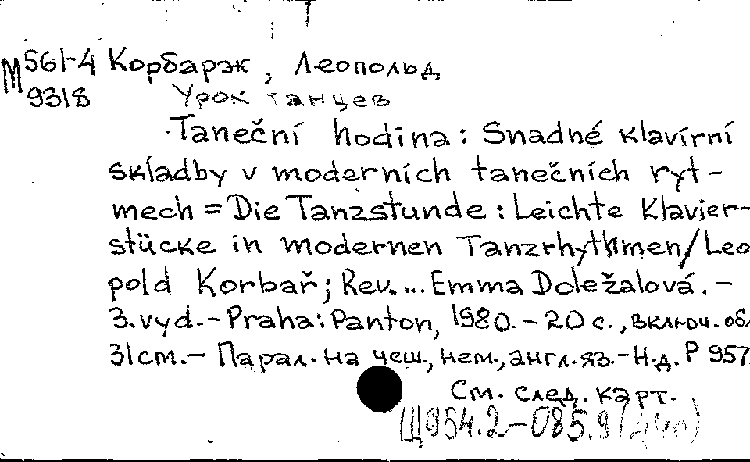 М 561-4 Корбарж, Леопольд
9318 Урок танцев
Taneční hodina: Snadné klavírní
skladby v moderních tanečních ryt-
mech = Die Tanzstunde: Leichte Klavier-
stücke in modernen Tanzrhythmen/Leo
pold Korbař; Rev. ... Emma Doležalová. –
3. vyd. – Praha: Panton, 1980. – 20 с., включ. об
31 cm. – Парал. на чеш., нем., англ. яз. – Н.д. Р 957
См. след. карт.
Щ954.2-085.9